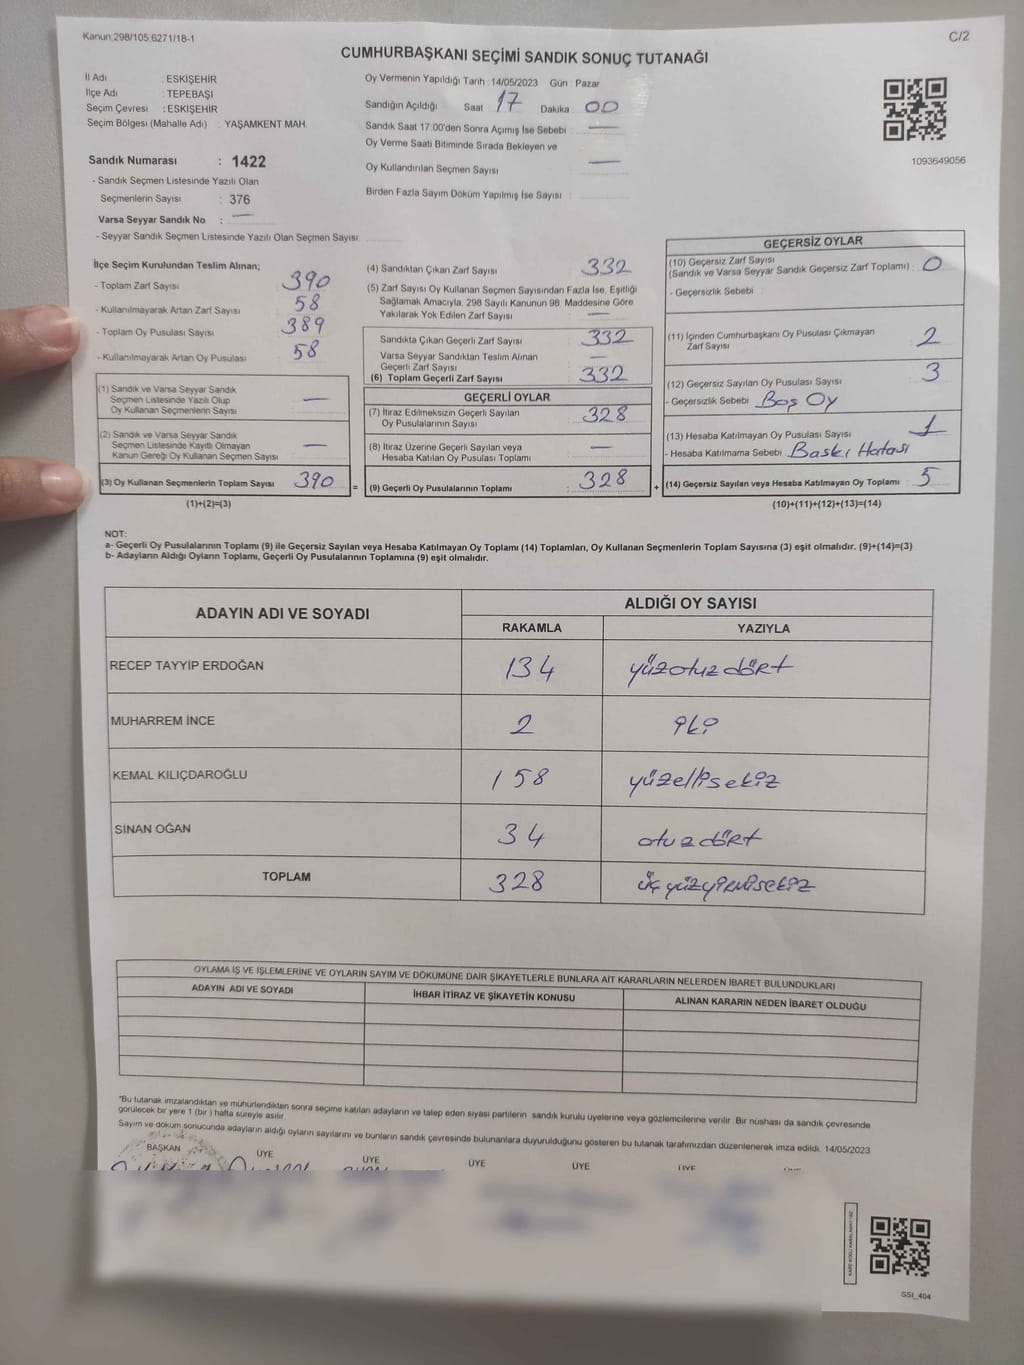 Kanun:298/105,6271/18-1
C/2
CUMHURBAŞKANI SEÇİMİ SANDIK SONUÇ TUTANAĞI
İl Adı : ESKİŞEHİR
İlçe Adı : TEPEBAŞI
Seçim Çevresi : ESKİŞEHİR
Seçim Bölgesi (Mahalle Adı) : YAŞAMKENT MAH.
Sandık Numarası : 1422
- Sandık Seçmen Listesinde Yazılı Olan
Seçmenlerin Sayısı : 376
Varsa Seyyar Sandık No : —
- Seyyar Sandık Seçmen Listesinde Yazılı Olan Seçmen Sayısı:
Oy Vermenin Yapıldığı Tarih :14/05/2023 Gün : Pazar
Sandığın Açıldığı Saat 17 Dakika : 00
Sandık Saat 17:00'den Sonra Açımış İse Sebebi : —
Oy Verme Saati Bitiminde Sırada Bekleyen ve
Oy Kullandırılan Seçmen Sayısı : —
Birden Fazla Sayım Döküm Yapılmış İse Sayısı :
1093649056
İlçe Seçim Kurulundan Teslim Alınan;
- Toplam Zarf Sayısı : 390
- Kullanılmayarak Artan Zarf Sayısı : 58
- Toplam Oy Pusulası Sayısı : 389
- Kullanılmayarak Artan Oy Pusulası : 58
(1) Sandık ve Varsa Seyyar Sandık
Seçmen Listesinde Yazılı Olup
Oy Kullanan Seçmenlerin Sayısı —
(2) Sandık ve Varsa Seyyar Sandık
Seçmen Listesinde Kayıtlı Olmayan
Kanun Gereği Oy Kullanan Seçmen Sayısı —
(3) Oy Kullanan Seçmenlerin Toplam Sayısı 390
(1)+(2)=(3)
(4) Sandıktan Çıkan Zarf Sayısı : 332
(5) Zarf Sayısı Oy Kullanan Seçmen Sayısından Fazla İse, Eşitliği
Sağlamak Amacıyla, 298 Sayılı Kanunun 98. Maddesine Göre
Yakılarak Yok Edilen Zarf Sayısı : —
Sandıkta Çıkan Geçerli Zarf Sayısı : 332
Varsa Seyyar Sandıktan Teslim Alınan
Geçerli Zarf Sayısı : —
(6) Toplam Geçerli Zarf Sayısı : 332
GEÇERLİ OYLAR
(7) İtiraz Edilmeksizin Geçerli Sayılan
Oy Pusulalarının Sayısı : 328
(8) İtiraz Üzerine Geçerli Sayılan veya
Hesaba Katılan Oy Pusulası Toplamı : —
= (9) Geçerli Oy Pusulalarının Toplamı : 328 +
GEÇERSİZ OYLAR
(10) Geçersiz Zarf Sayısı
(Sandık ve Varsa Seyyar Sandık Geçersiz Zarf Toplamı) : 0
- Geçersizlik Sebebi :
(11) İçinden Cumhurbaşkanı Oy Pusulası Çıkmayan
Zarf Sayısı : 2
(12) Geçersiz Sayılan Oy Pusulası Sayısı : 3
- Geçersizlik Sebebi : Boş Oy
(13) Hesaba Katılmayan Oy Pusulası Sayısı : 1
- Hesaba Katılmama Sebebi : Baskı Hatası
(14) Geçersiz Sayılan veya Hesaba Katılmayan Oy Toplamı : 5
(10)+(11)+(12)+(13)=(14)
NOT:
a- Geçerli Oy Pusulalarının Toplamı (9) ile Geçersiz Sayılan veya Hesaba Katılmayan Oy Toplamı (14) Toplamları, Oy Kullanan Seçmenlerin Toplam Sayısına (3) eşit olmalıdır. (9)+(14)=(3)
b- Adayların Aldığı Oyların Toplamı, Geçerli Oy Pusulalarının Toplamına (9) eşit olmalıdır.
ADAYIN ADI VE SOYADI ALDIĞI OY SAYISI
RAKAMLA YAZIYLA
RECEP TAYYİP ERDOĞAN 134 yüzotuzdört
MUHARREM İNCE 2 iki
KEMAL KILIÇDAROĞLU 158 yüzellisekiz
SİNAN OĞAN 34 otuzdört
TOPLAM 328 üçyüzyirmisekiz
OYLAMA İŞ VE İŞLEMLERİNE VE OYLARIN SAYIM VE DÖKÜMÜNE DAİR ŞİKAYETLERLE BUNLARA AİT KARARLARIN NELERDEN İBARET BULUNDUKLARI
ADAYIN ADI VE SOYADI İHBAR İTİRAZ VE ŞİKAYETİN KONUSU ALINAN KARARIN NEDEN İBARET OLDUĞU
*Bu tutanak imzalandıktan ve mühürlendikten sonra seçime katılan adayların ve talep eden siyasi partilerin sandık kurulu üyelerine veya gözlemcilerine verilir. Bir nüshası da sandık çevresinde
görülecek bir yere 1 (bir ) hafta süreyle asılır.
Sayım ve döküm sonucunda adayların aldığı oyların sayılarını ve bunların sandık çevresinde bulunanlara duyurulduğunu gösteren bu tutanak tarafımızdan düzenlenerek imza edildi. 14/05/2023
BAŞKAN ÜYE ÜYE ÜYE ÜYE ÜYE ÜYE
SSİ_404